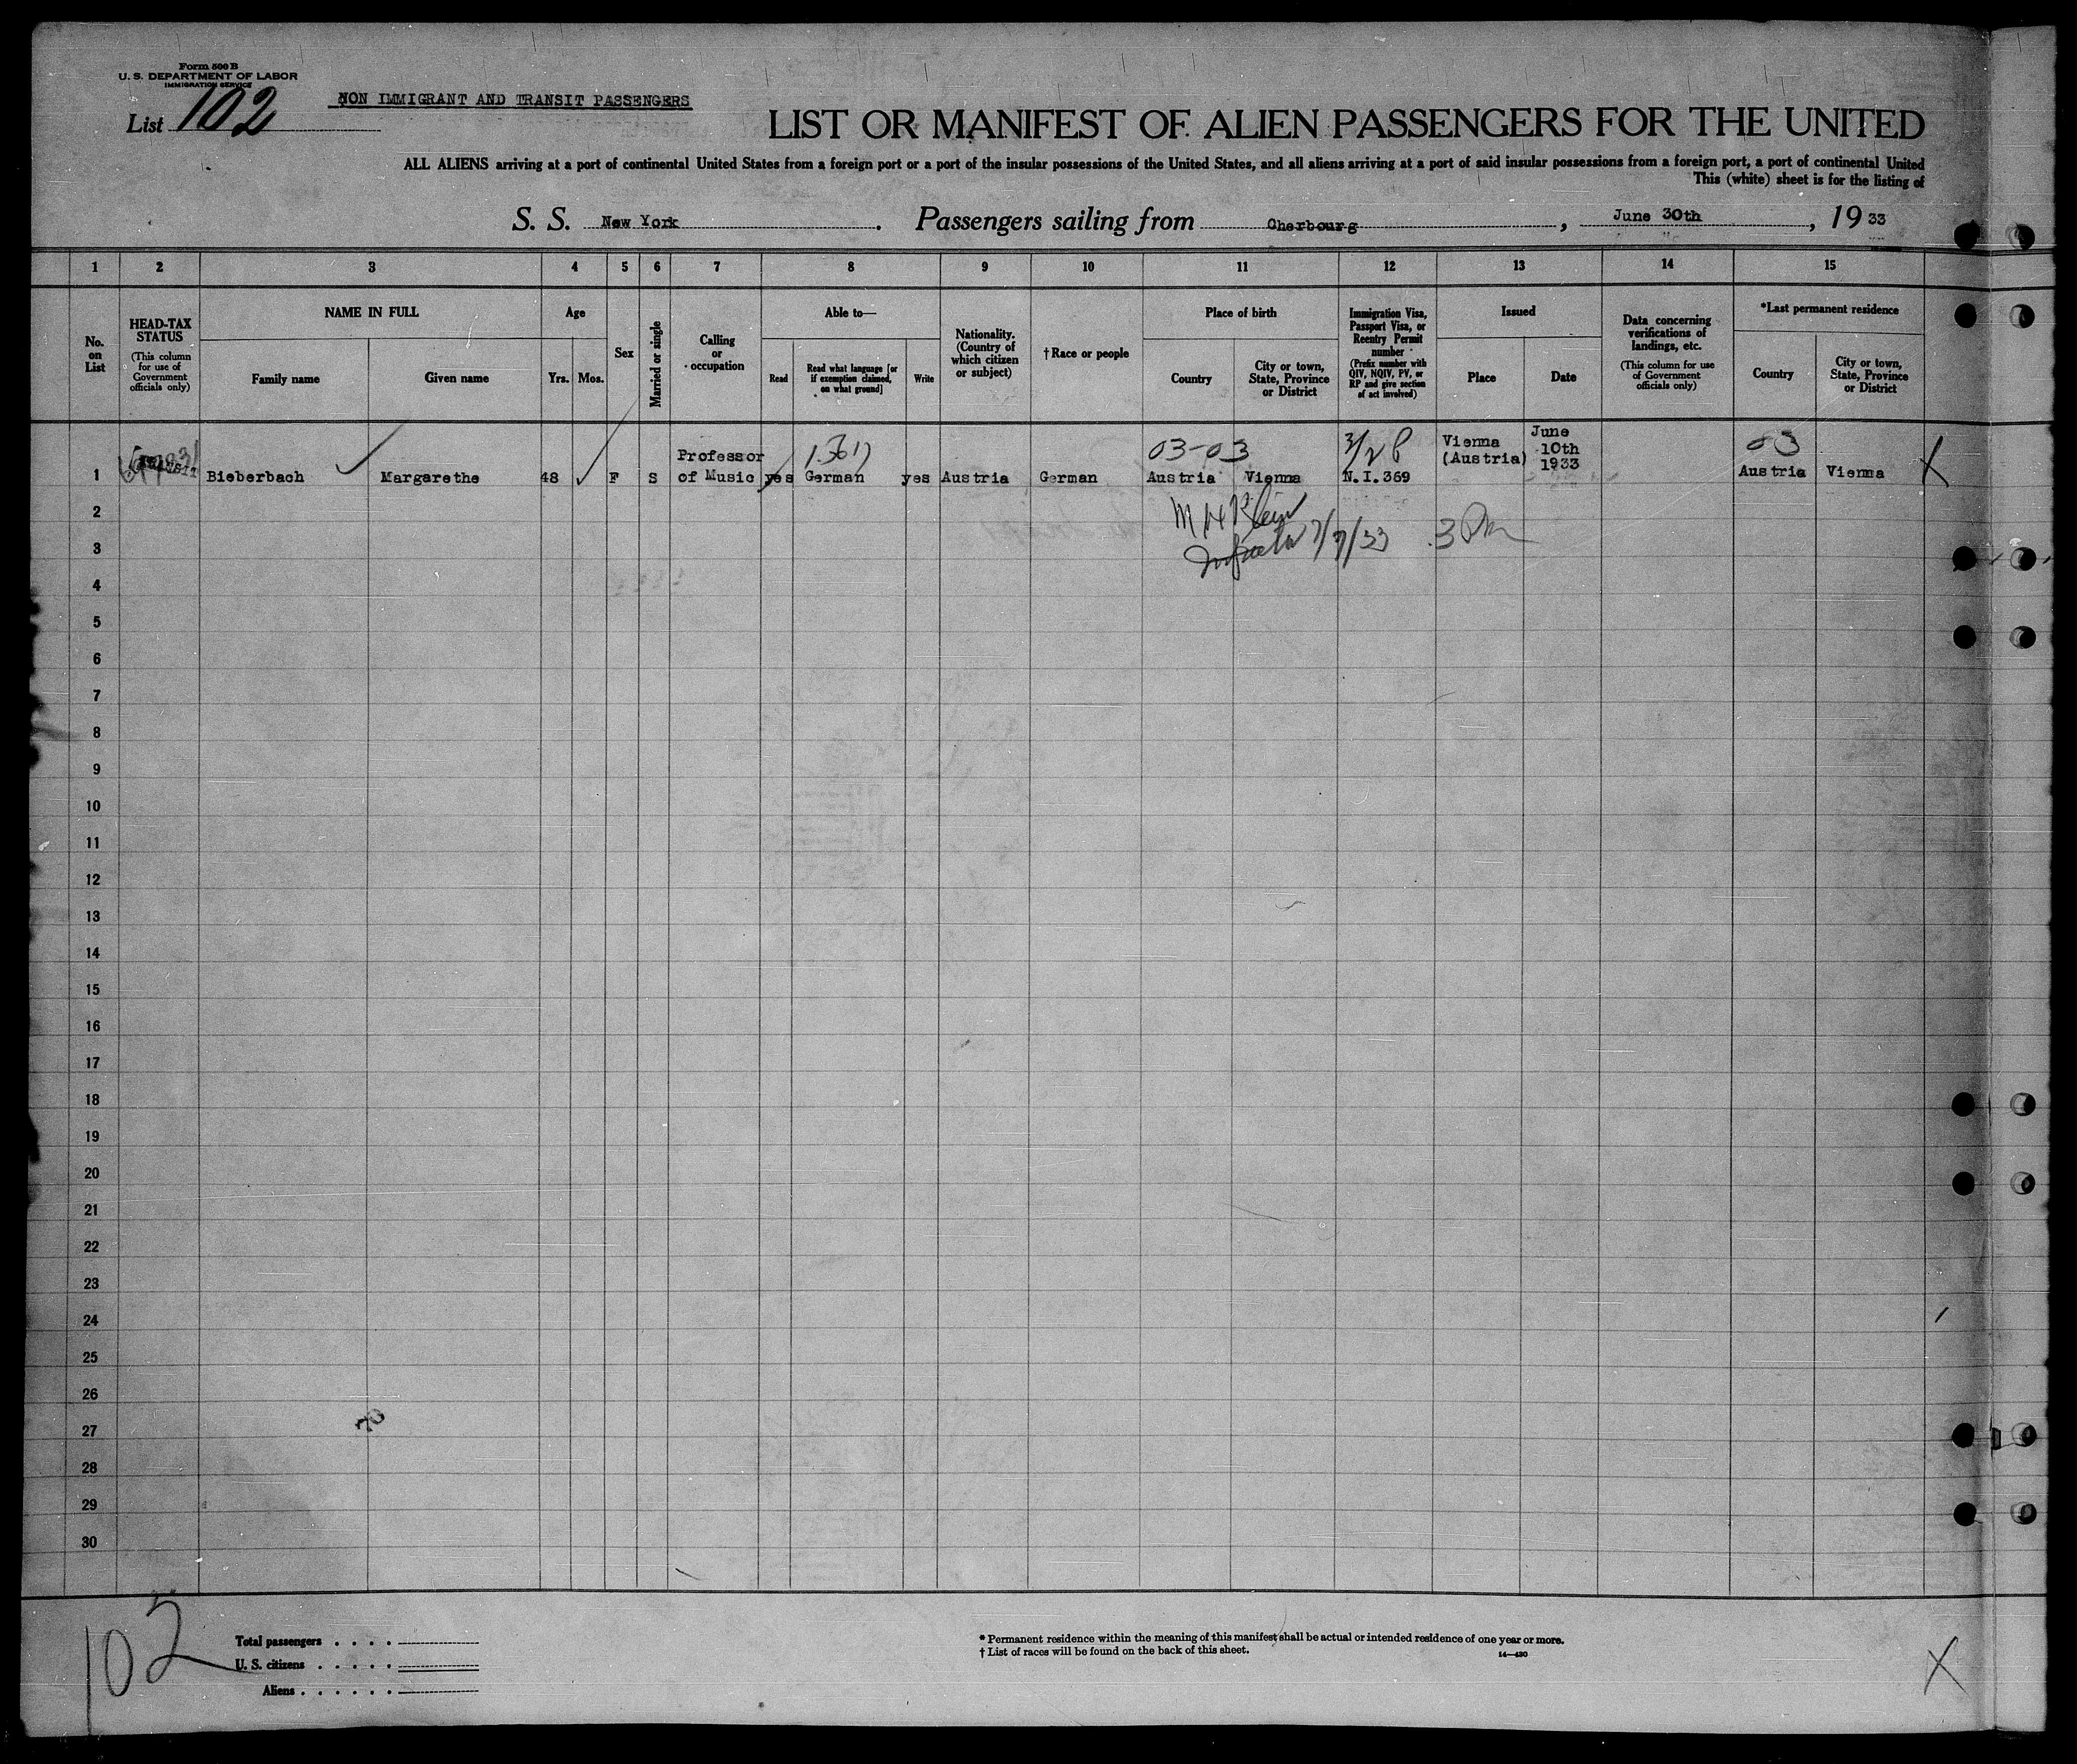 Form 500 B
U. S. DEPARTMENT OF LABOR
IMMIGRATION SERVICE
List 102
NON IMMIGRANT AND TRANSIT PASSENGERS
LIST OR MANIFEST OF ALIEN PASSENGERS FOR THE UNITED
ALL ALIENS arriving at a port of continental United States from a foreign port or a port of the insular possessions of the United States, and all aliens arriving at a port of said insular possessions from a foreign port, a port of continental United
This (white) sheet is for the listing of
S. S. New York. Passengers sailing from Cherbourg, June 30th, 19 33
1 2 3 4 5 6 7 8 9 10 11 12 13 14 15
No. on List
HEAD-TAX STATUS
(This column for use of Government officials only)
NAME IN FULL
Family name
Given name
Age
Yrs. Mos.
Sex
Married or single
Calling or occupation
Able to—
Read
Read what language [or if exemption claimed, on what ground]
Write
Nationality. (Country of which citizen or subject)
† Race or people
Place of birth
Country
City or town, State, Province or District
Immigration Visa, Passport Visa, or Reentry Permit number
(Prefix number with QIV, NQIV, PV, or RP and give section of act involved)
Issued
Place
Date
Data concerning verifications of landings, etc.
(This column for use of Government officials only)
*Last permanent residence
Country
City or town, State, Province or District
03-03 3/2 03
1 Bieberbach Margarethe 48 F S Professor of Music yes German yes Austria German Austria Vienna N.I.369 Vienna (Austria) June 10th 1933 Austria Vienna X
2
M H Klein
3
7/7/33 3 Pm
4
5
6
7
8
9
10
11
12
13
14
15
16
17
18
19
20
21
22
23
24
25
26
27
28
29
30
102
Total passengers
U. S. citizens
Aliens
* Permanent residence within the meaning of this manifest shall be actual or intended residence of one year or more.
† List of races will be found on the back of this sheet.
14—430
X